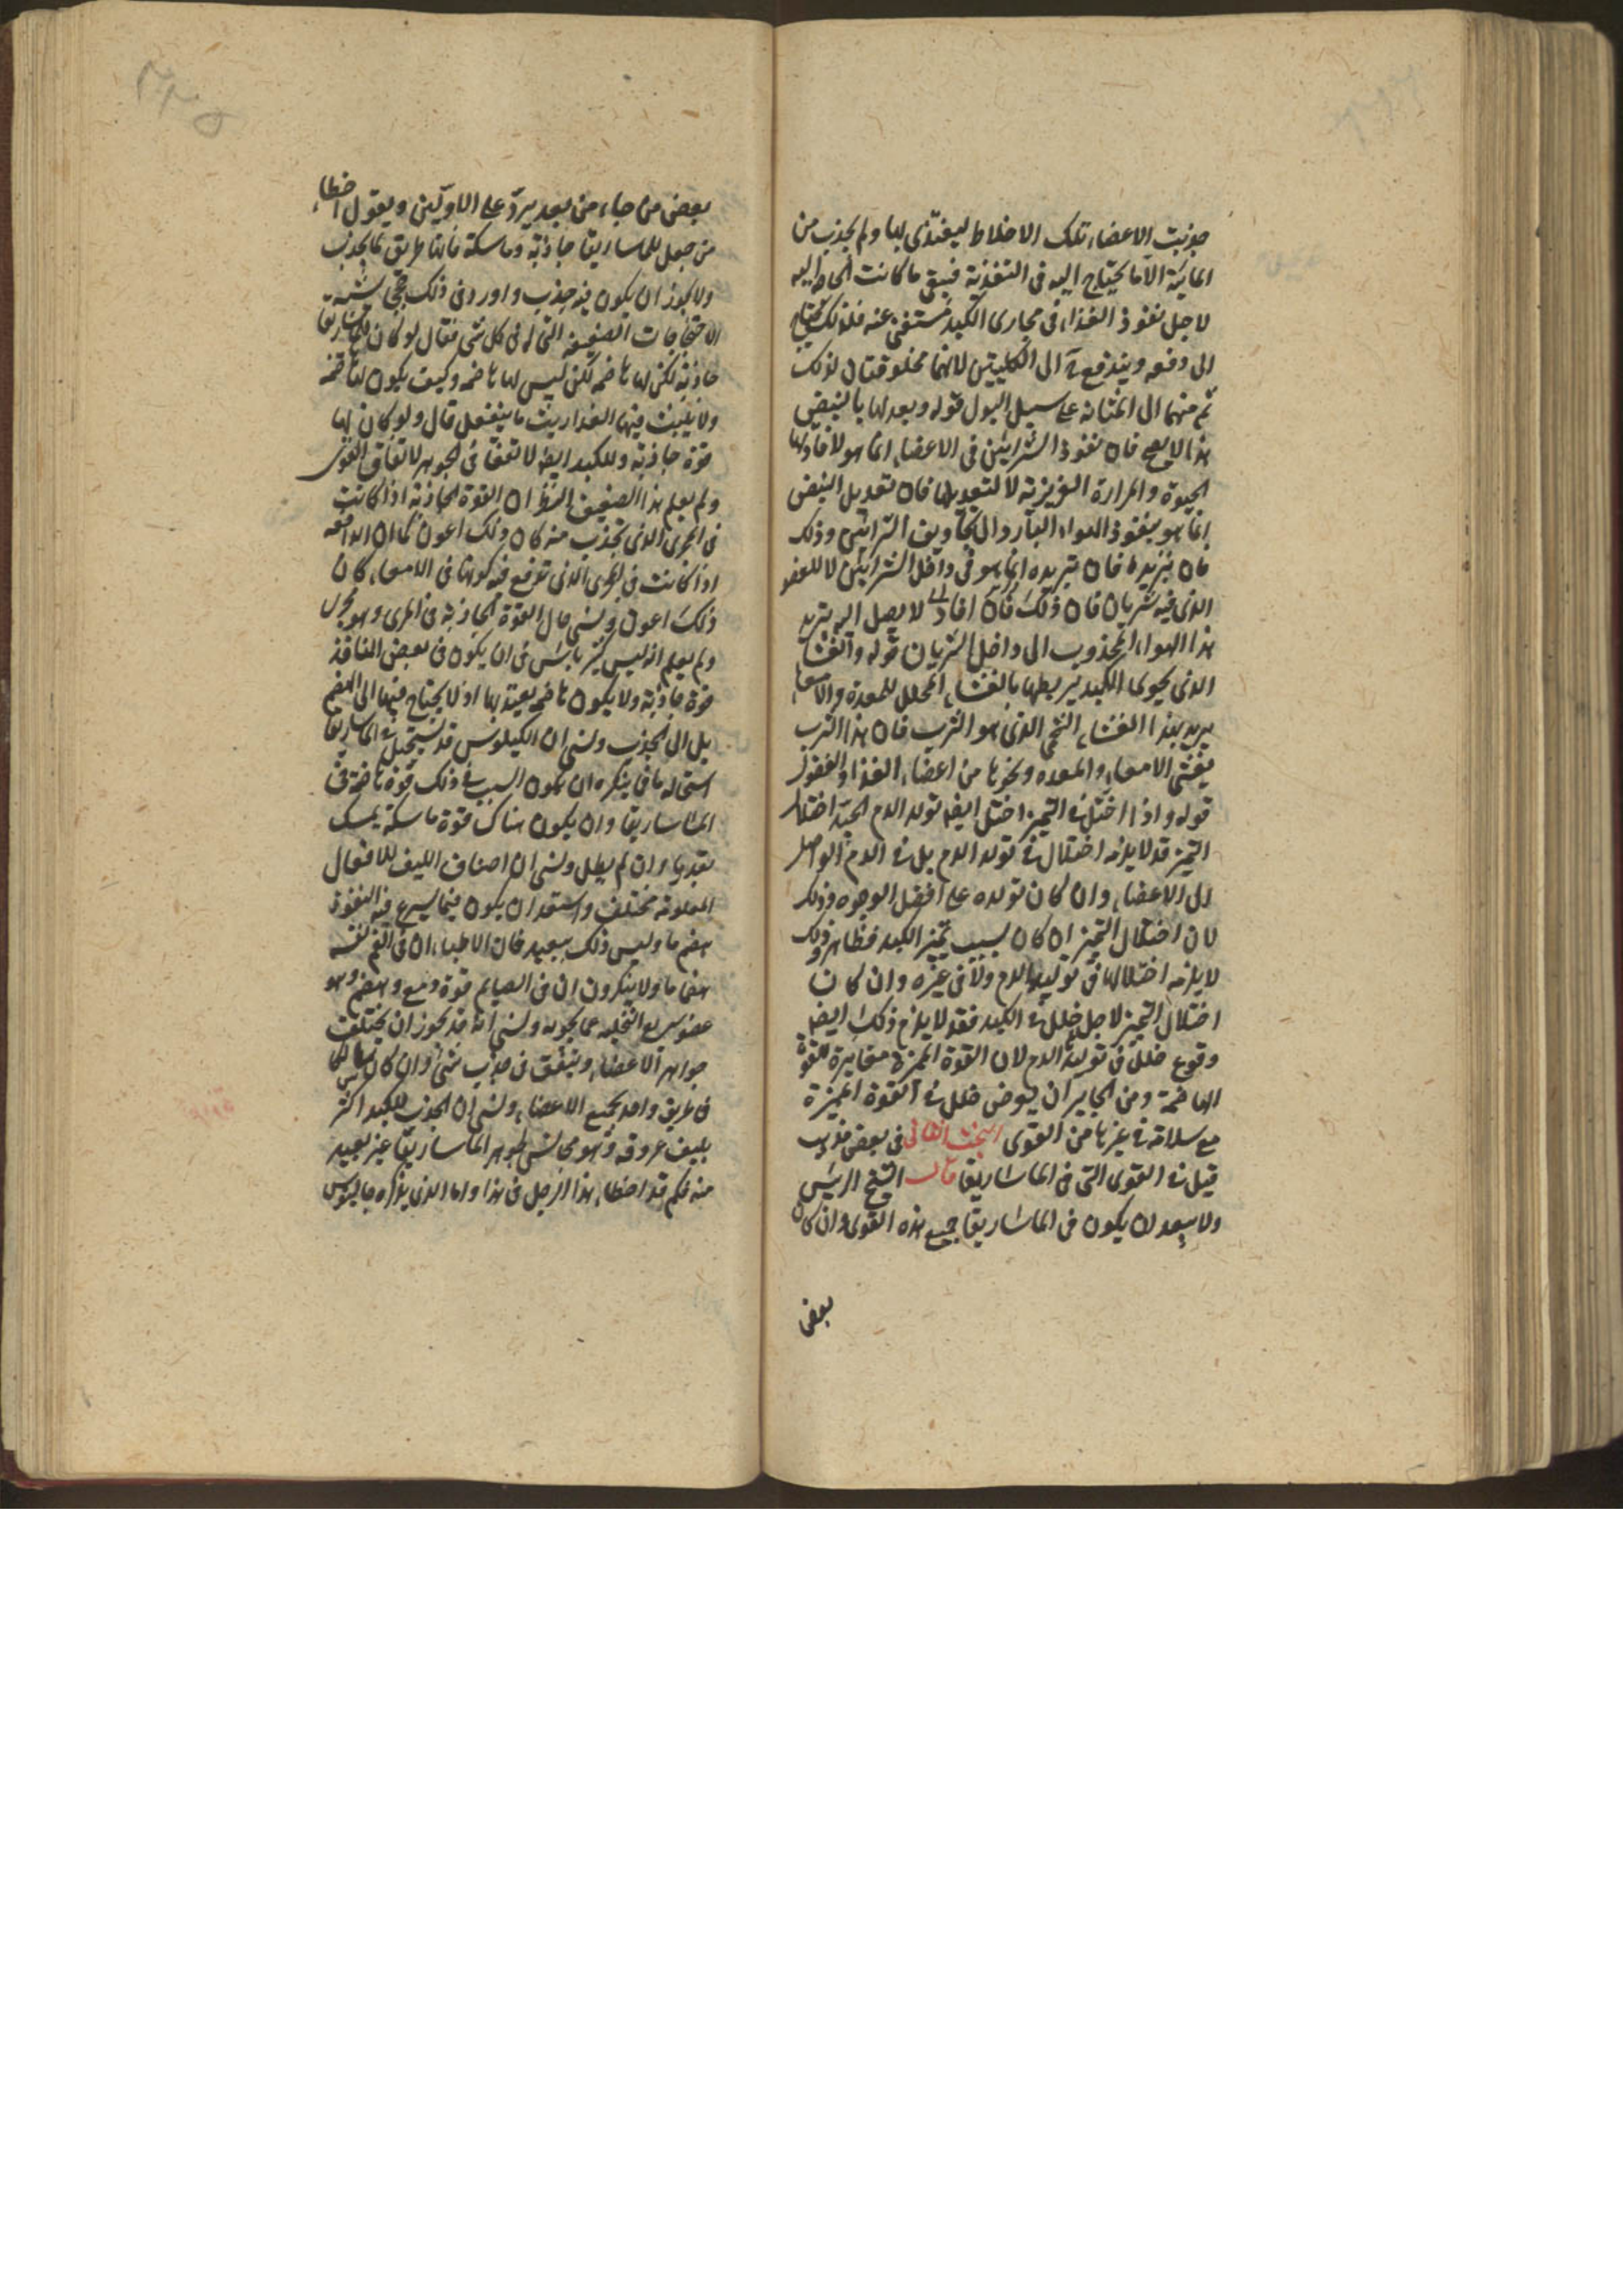 جذبت الاعضاء تلك الاخلاط ليغتذى بها ولم يجذب من
المائية الا ما يحتاج اليه فى التغذية فبقى ما كانت الحاجة اليه
لاجل نفوذ الغذاء فى مجارى الكبد مستغنى عنه فلذلك يحتاج
الى دفعه ويندفع الى الكليتين لانهما مخلوقتان لذلك
ثم منهما الى المثانة على سبيل البول قوله وبعدلها بالنبض
هذا لا يصح فان نفوذ الشرايين فى الاعضاء انما هو لافادتها
الحيوة والحرارة الغريزية لا لتعديلها فان تعديل النبض
انما هو بنفوذ الهواء البارد الى تجاويف الشرايين وذلك
فان تبريده انما هو فى داخل الشرايين لا للعضو
الذى فيه شريان فان ذلك لا يصل اليه تبريد
هذا الهواء المجذوب الى داخل الشريان قوله والغشاء
الذى يحوى الكبد يربطها بالغشاء المجلل للمعدة والامعاء
يريد بهذا الغشاء الشحمى الذى هو الثرب فان هذا الثرب
يغشى الامعاء والمعده ونحوها من اعضاء الغذا والفضول
قوله واذا اختل التميز اختل ايضا تولد الدم الجيد اختلال
التميز قد لا يلزمه اختلال فى تولد الدم بل فى الدم الواصل
الى الاعضاء وان كان تولده على افضل الوجوه وذلك
لان اختلال التميز ان كان بسبب تميز الكبد فظاهر وذلك
لا يلزمه اختلالها فى توليد الدم ولا فى غيره وان كان
اختلال التميز لاجل خلل فى الكبد فقد لا يلزم ذلك ايضا
وقوع خلل فى توليد الدم لان القوة المميزة مغايرة للقوة
الهاضمة ومن الجايز ان يعرض خلل فى القوة المميزة
مع سلامة غيرها من القوى البحث الثانى فى بعض مذاهب
قيل فى القوى التى فى الماساريقا قال الشيخ الرئيس
ولا يبعد ان يكون فى الماساريقا جميع هذه القوى وان كان
بعض
بعض من جاء من بعد يرد على الاولين ويقول اخطاء
من جعل للماساريقا جاذبة وماسكة فانها طريق لما يجذب
ولا يجوز ان يكون فيه جذب واورد فى ذلك حججا يشبه
الاحتجاجات الضعيفه التى له فى كل شى فقال لو كان للماساريقا
جاذبة لكن لها هاضمه لكن ليس لها هاضمه وكيف يكون لها هاضمه
ولا يلبث فيها الغذا ريث ما ينفعل قال ولو كان لها
قوة جاذبة وللكبد ايضا لاتفقا فى الجوهر لاتفاق القوى
ولم يعلم هذا الضعيف النظر ان القوة الجاذبة اذا كانت
فى المجرى الذى تجذب منه كان ذلك اعون كما ان الدافعه
اذا كانت فى المجرى الذى تدفع فيه كونها فى الامعاء كان
ذلك اعون ونسى حال القوة الجاذبة فى المرى وهو مجرى
ولم يعلم انه ليس كثير باس فى ان يكون فى بعض المنافذ
قوة جاذبة ولا يكون هاضمه يعتد بها اذ لا يحتاج فيها الى الهضم
بل الى الجذب ونسى ان الكيلوس قد تستحيل فى الماساريقا
استحاله ما فما ينكره ان يكون السبب فى ذلك قوة هاضمة فى
الماساريقا وان يكون هناك قوة ماسكة يمسك
بقدر ما وان لم يطل ونسى ان اصناف الليف للافعال
المعلومة مختلف واستبعد ان يكون فيما يسرع فيه النفوذ
هضم ما وليس ذلك ببعيد فان الاطباء ان فى الفم نفسه
هضما ما ولا ينكرون ان فى الصايم قوة دفع وهضم وهو
عضو سريع التخليه عما يحويه ونسى انه قد يجوز ان يختلف
جواهر الاعضاء ويتفق فى جذب شى وان كان سالكا
فى طريق واحد بجميع الاعضاء ونسى ان الجذب للكبد اكثر
بليف عروقه وهو مجانس لجوهر الماساريقا غير بعيد
منه فكم قد اخطاء هذا الرجل فى هذا واما الذى يذكره جالينوس